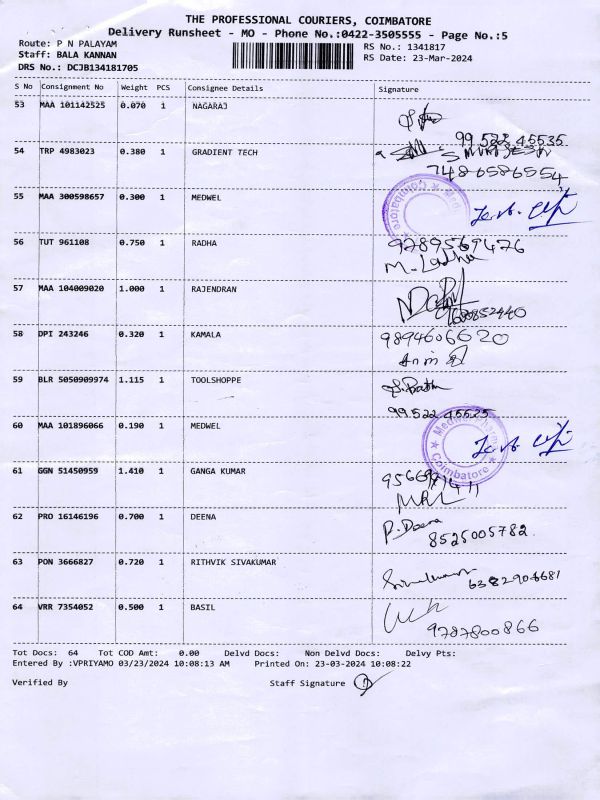 THE PROFESSIONAL COURIERS, COIMBATORE
Delivery Runsheet - MO - Phone No.:0422-3505555 - Page No.:5
Route: P N PALAYAM
RS No.: 1341817
Staff: BALA KANNAN
RS Date: 23-Mar-2024
DRS No.: DCJB134181705
S No Consignment No Weight PCS Consignee Details Signature
53 MAA 101142525 0.070 1 NAGARAJ
99 522 45535
54 TRP 4983023 0.380 1 GRADIENT TECH
7486586554
55 MAA 300598657 0.300 1 MEDWEL
Coimbatore
56 TUT 961108 0.750 1 RADHA 9789569476
M. Ladha
57 MAA 104009020 1.000 1 RAJENDRAN
58 DPI 243246 0.320 1 KAMALA 9894606620
59 BLR 5050909974 1.115 1 TOOLSHOPPE
99 522 45535
60 MAA 101896066 0.190 1 MEDWEL
Coimbatore
61 GGN 51450959 1.410 1 GANGA KUMAR
62 PRO 16146196 0.700 1 DEENA P. Deena
8525005782
63 PON 3666827 0.720 1 RITHVIK SIVAKUMAR
64 VRR 7354052 0.500 1 BASIL
9787800866
Tot Docs: 64 Tot COD Amt: 0.00 Delvd Docs: Non Delvd Docs: Delvy Pts:
Entered By :VPRIYAMO 03/23/2024 10:08:13 AM Printed On: 23-03-2024 10:08:22
Verified By Staff Signature